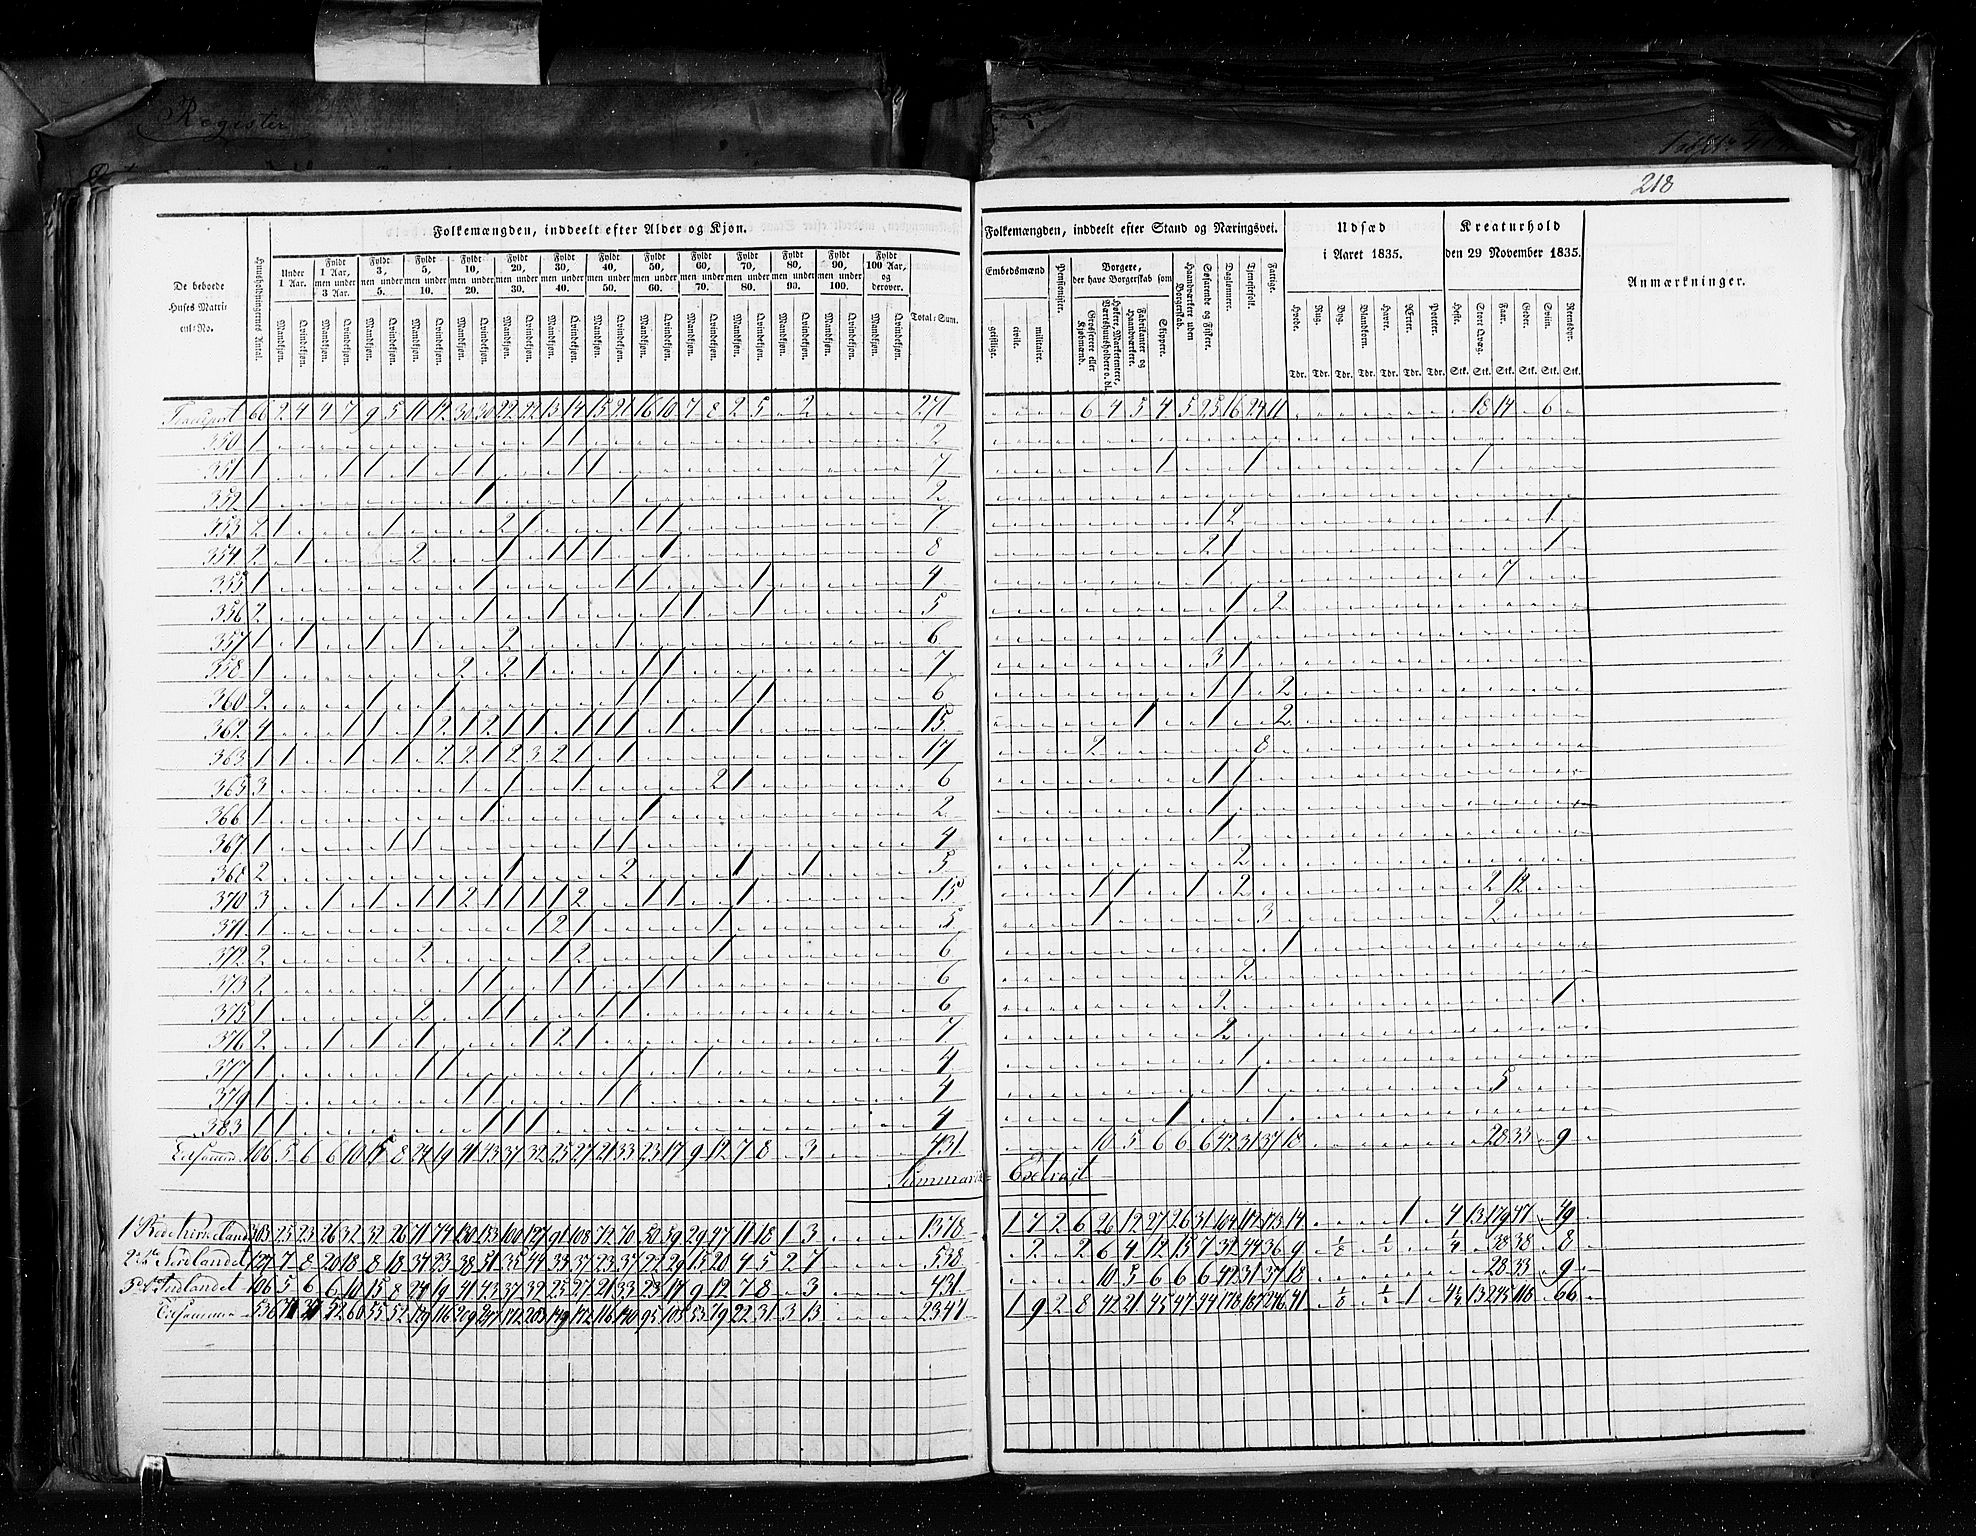 Register
218
Folkemængden, inddeelt efter Alder og Kjøn.
De beboede Huses Matricul-No.
Huusholdningernes Antal.
Under 1 Aar.
Fyldt 1 Aar, men under 3 Aar.
Fyldt 3, men under 5.
Fyldt 5, men under 10.
Fyldt 10, men under 20.
Fyldt 20, men under 30.
Fyldt 30, men under 40.
Fyldt 40, men under 50.
Fyldt 50, men under 60.
Fyldt 60, men under 70.
Fyldt 70, men under 80.
Fyldt 80, men under 90.
Fyldt 90, men under 100.
Fyldt 100 Aar, og derover.
Mandkjøn. Qvindekjøn. Mandkjøn. Qvindekjøn. Mandkjøn. Qvindekjøn. Mandkjøn. Qvindekjøn. Mandkjøn. Qvindekjøn. Mandkjøn. Qvindekjøn. Mandkjøn. Qvindekjøn. Mandkjøn. Qvindekjøn. Mandkjøn. Qvindekjøn. Mandkjøn. Qvindekjøn. Mandkjøn. Qvindekjøn. Mandkjøn. Qvindekjøn. Mandkjøn. Qvindekjøn. Mandkjøn. Qvindekjøn.
Total-Sum.
Folkemængden, inddeelt efter Stand og Næringsvei.
Embedsmænd
geistlige.
civile.
militaire.
Pensionister.
Borgere, der have Borgerskab som
Grosserere eller Kjøbmænd.
Høkere, Marketentere, Værtshuusholdere o. dl.
Fabrikanter og Haandværkere.
Skippere.
Haandværkere uden Borgerskab.
Søfarende og Fiskere.
Daglønnere.
Tjenestefolk.
Fattige.
Udsæd i Aaret 1835.
Hvede. Rug. Byg. Blandkorn. Havre. Erter. Poteter.
Tdr. Tdr. Tdr. Tdr. Tdr. Tdr. Tdr.
Kreaturhold den 29 November 1835.
Heste. Stort Qvæg. Faar. Geder. Sviin. Reensdyr.
Stk. Stk. Stk. Stk. Stk. Stk.
Anmærkninger.
Transport 66 2 4 4 7 9 5 11 12 30 30 22 22 13 14 15 21 16 10 7 8 2 5 2 271 6 4 5 4 5 25 16 24 11 18 14 6
350 1 1 1 2
351 1 1 1 1 1 1 1 1 7 1 1 1
352 1 1 1 2
353 2 1 1 2 1 1 1 7 1 2 1
354 2 1 2 1 1 1 1 1 8 2 1 1
355 1 1 1 1 1 4 1 7
356 2 1 1 1 1 1 5 1 2
357 1 1 1 1 2 1 6 1
358 1 2 2 1 1 1 7 3 1
360 2 1 1 1 1 1 1 6 1 1 2
362 4 1 1 1 2 1 2 1 1 1 1 1 1 1 15 1 1 2
363 1 1 1 1 2 2 1 2 3 2 1 1 17 2 8
365 3 1 1 1 2 1 6 1 1
366 1 1 1 2 1
367 1 1 1 1 1 4 1
368 2 1 2 1 1 5 2
370 3 1 1 1 1 2 1 1 1 1 2 1 1 1 15 1 1 1 2 2 12
371 1 1 2 1 1 5 1 3 2
372 2 2 1 2 1 6 1
373 2 1 1 1 1 1 1 6 2
375 1 2 1 1 1 1 6 2 1
376 2 1 1 1 1 2 1 7 2
377 1 1 1 1 1 4 1
379 1 1 1 1 1 4 1 5
383 1 1 1 1 1 4 1 1
Tilsammen 106 5 6 6 10 15 8 24 19 41 43 37 32 25 27 21 33 23 17 9 12 7 8 3 431 10 5 6 6 6 42 31 37 18 28 33 9
Summarisk Extract
1378 1 7 2 6 26 12 27 26 31 104 112 173 14 1 4 13 179 47 49
2 Nordlandet 127 7 8 20 18 8 18 34 23 38 51 35 44 33 37 23 37 22 29 15 20 4 5 2 7 538 2 2 6 4 12 15 7 32 44 36 9 1/8 1/2 1/4 38 38 8
3 Inlandet 106 5 6 6 10 15 8 24 19 41 43 37 32 25 27 21 33 23 17 9 12 7 8 3 431 10 5 6 6 6 42 31 37 18 28 33 9
Tilsammen 536 2347 1 9 2 8 42 21 45 47 44 178 187 246 41 1/8 1/2 1 4 1/4 13 245 118 66